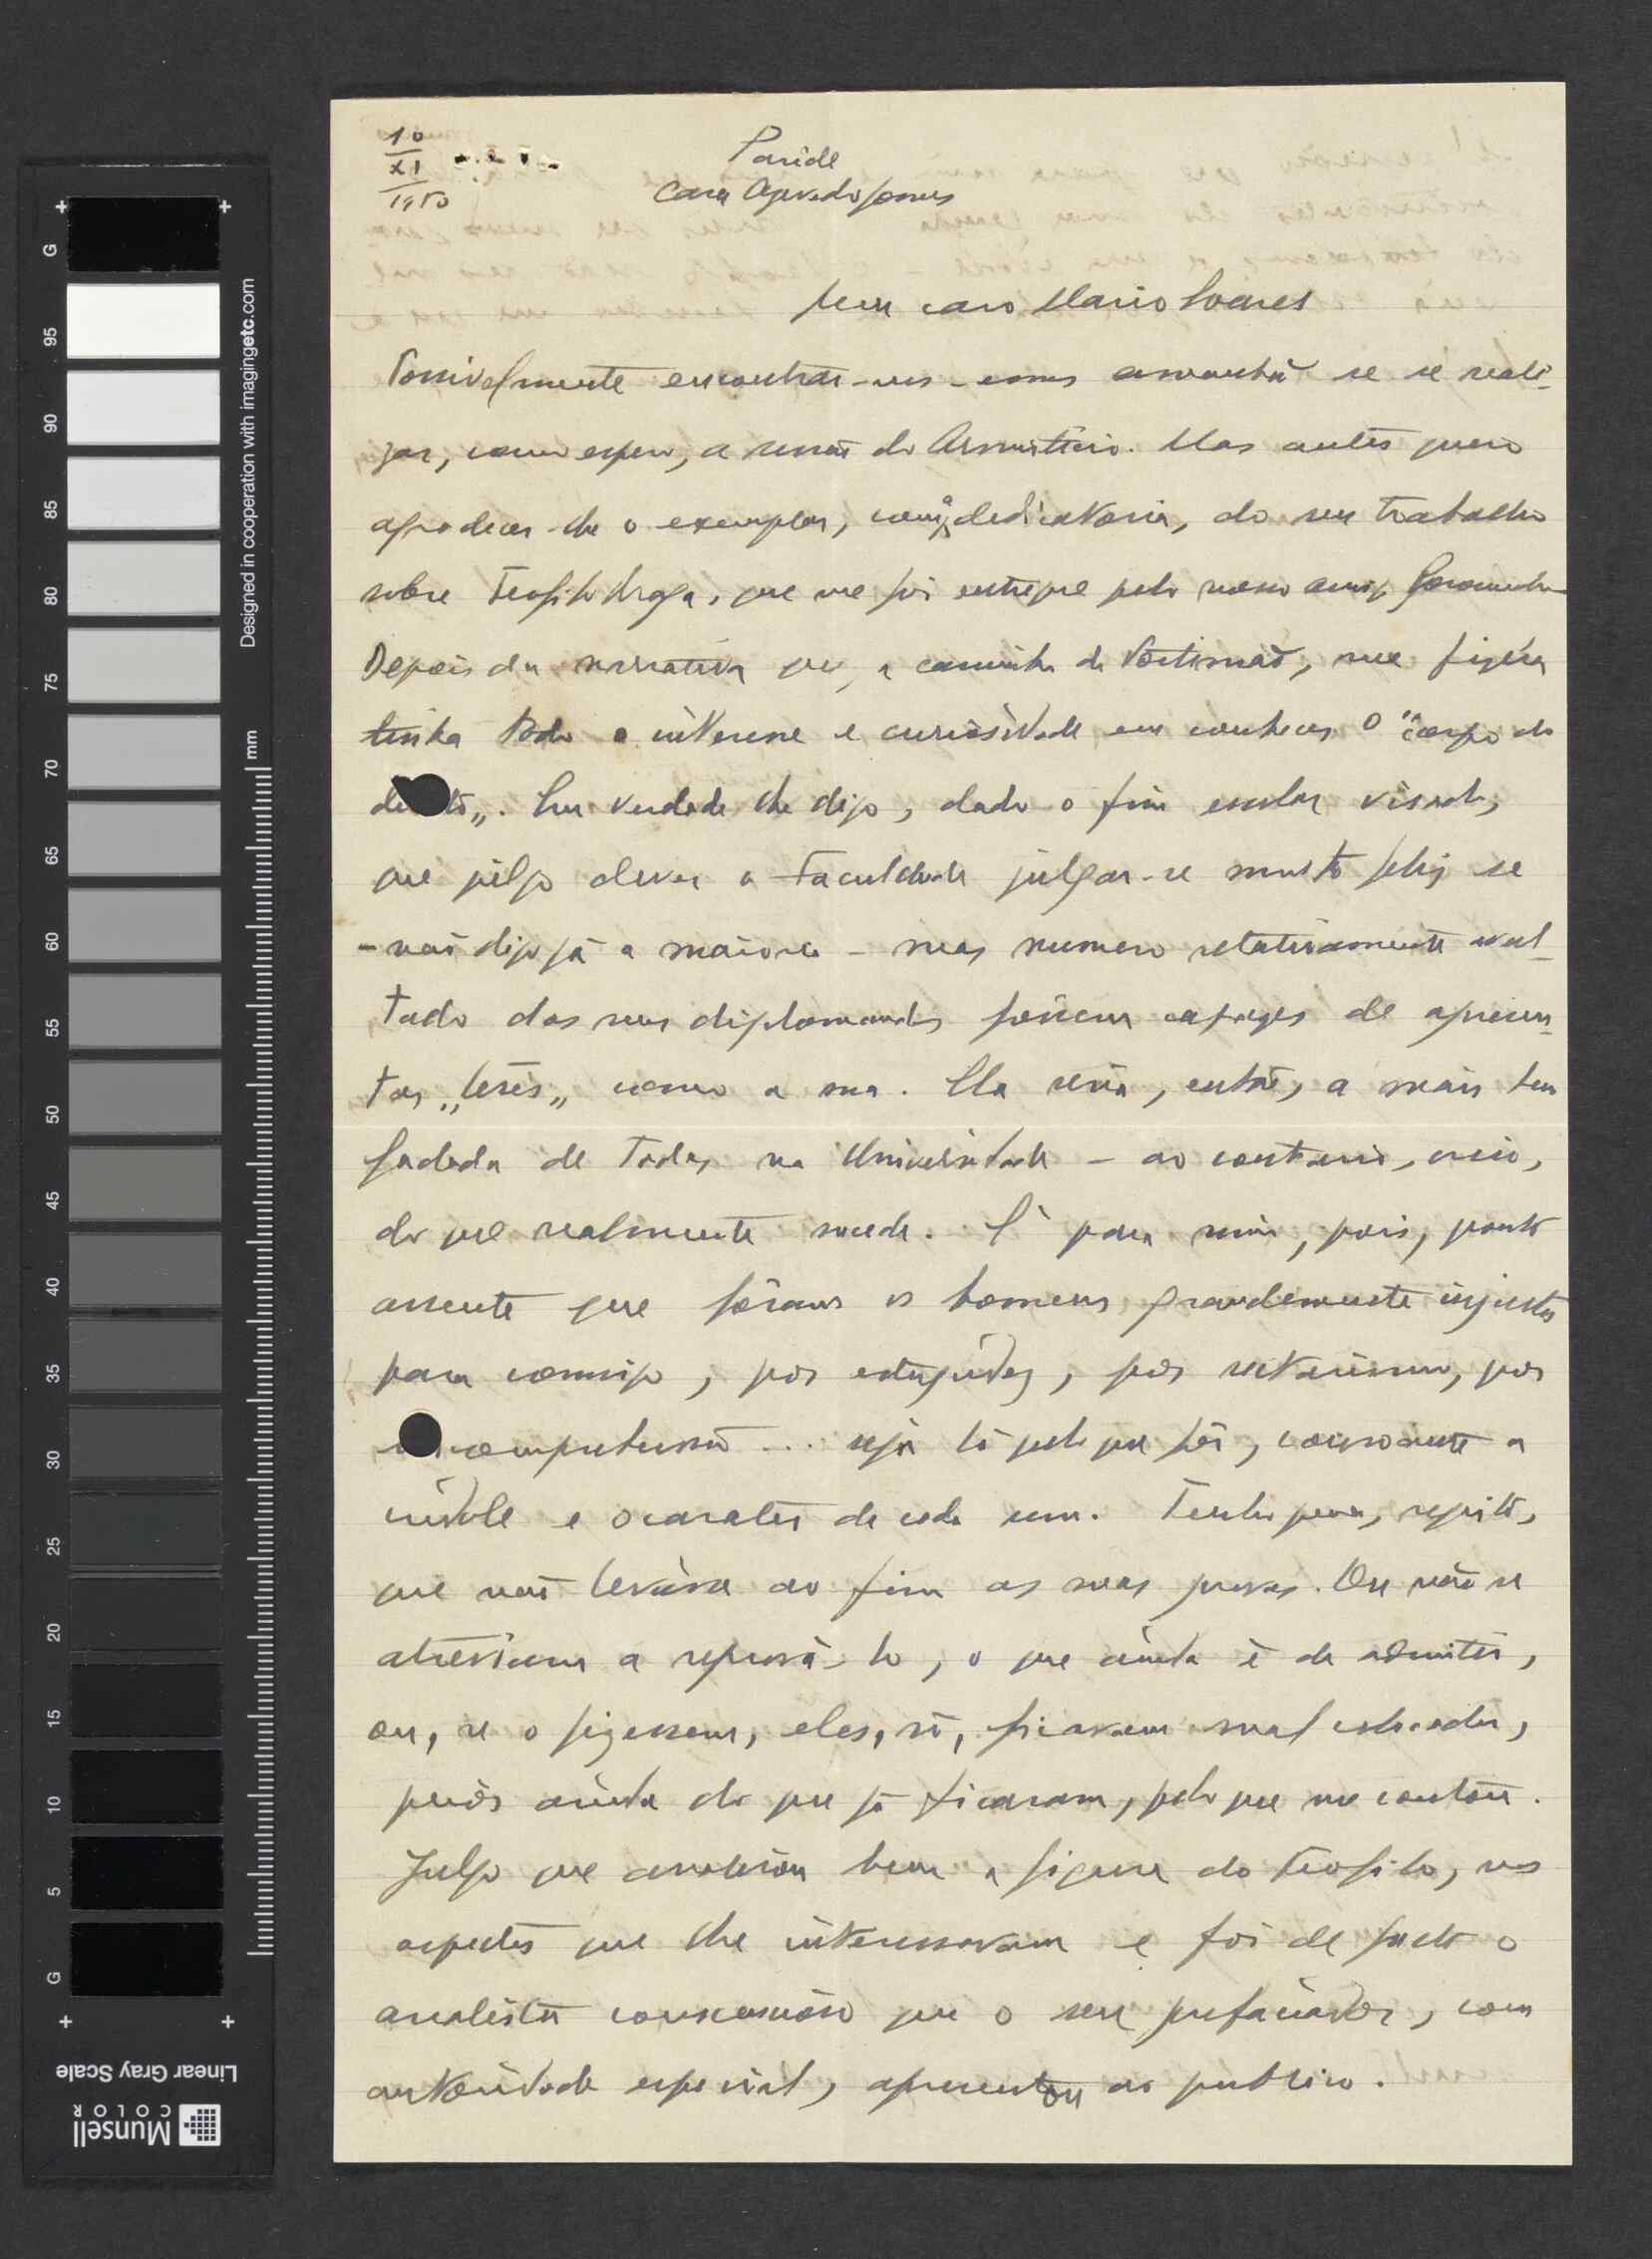 10
XI
1950
Parede
Casa Azevedo Gomes
Meu caro Mario Soares
Possivelmente encontrar-nos-emos amanhã se se reali-
zar, como espero, a sessão do Armistício. Mas antes quero
agradecer-lhe o exemplar, com a dedicatoria, do seu trabalho
sobre Teofilo Braga, que me foi entregue pelo nosso amigo
Depois da narrativa que, a caminho de Portimão, me fizéra
tinha todo o interesse e curiosidade em conhecer o "corpo do
delito„. Em verdade lhe digo, dado o fim escolar visado,
que julgo dever a Faculdade julgar-se muito feliz se
- não digo já a maioria - mas numero relativamente avul-
tado dos seus diplomandos fôssem capazes de apresen-
tar „teses„ como a sua. Ela seria, então, a mais bem
fadada de todas na Universidade - ao contrario, creio,
do que realmente sucede. É para mim, pois, ponto
assente que fôram os homens grandemente injustos
para comsigo, por estupidez, por sectarismo, por
incompreensão ... seja lá pelo que fôr, consoante a
indole e o carater de cada um. Tenho pena, repito,
que não levásse ao fim as suas provas. Ou não se
atreviam a reprová-lo, o que ainda é de admitir,
ou, se o fizessem, eles, só, ficavam mal colocados,
peior ainda do que já ficaram, pelo que me contou.
Julgo que analisou bem a figura do Teofilo, nos
aspectos que lhe interessavam e foi de facto o
analista consciencioso que o seu prefaciador, com
autoridade especial, apresentou ao publico.
Munsell
COLOR
Linear Gray Scale
Designed in cooperation with imagingetc.com
mm
G
95
90
85
80
75
70
65
60
55
50
45
40
35
30
25
20
15
10
5
G